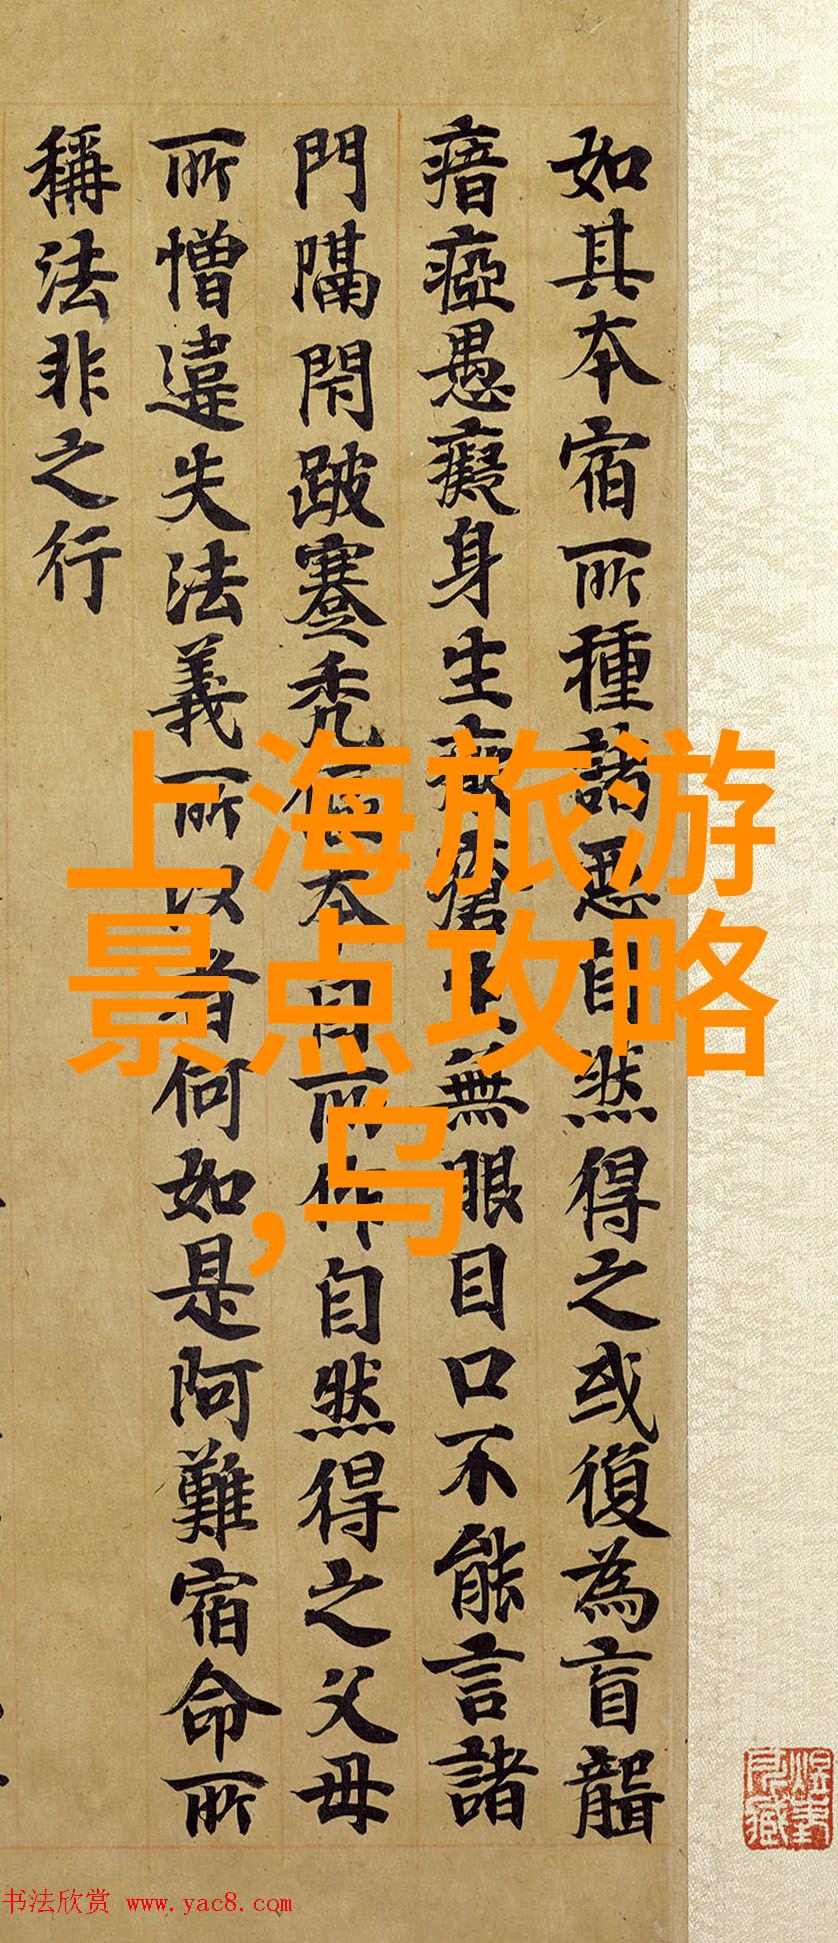 如其本宿所種諸惡自然得之或復為盲聾
瘖瘂愚癡身生瘡無眼目口不能言諸
門隔閇跛蹇禿傴本自所作自然得之父母
所憎違失法義所以者何如是阿難宿命所
稱法非之行
上海旅游
景点攻略
,乌
书法欣赏 www.yac8.com